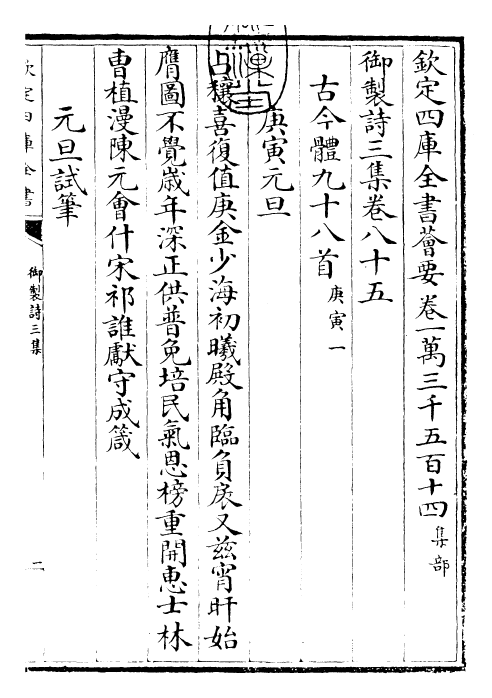 欽定四庫全書薈要卷一萬三千五百十四 集部
御製詩三集卷八十五
古今體九十八首 庚寅一
庚寅元旦
占穰喜復值庚金少海初曦殿角臨負扆又茲宵旰始
膺圖不覺嵗年深正供普免培民氣恩榜重開恵士林
曹植漫陳元會什宋祁誰獻守成箴
元旦試筆
欽定四庫全書
御製詩三集
二